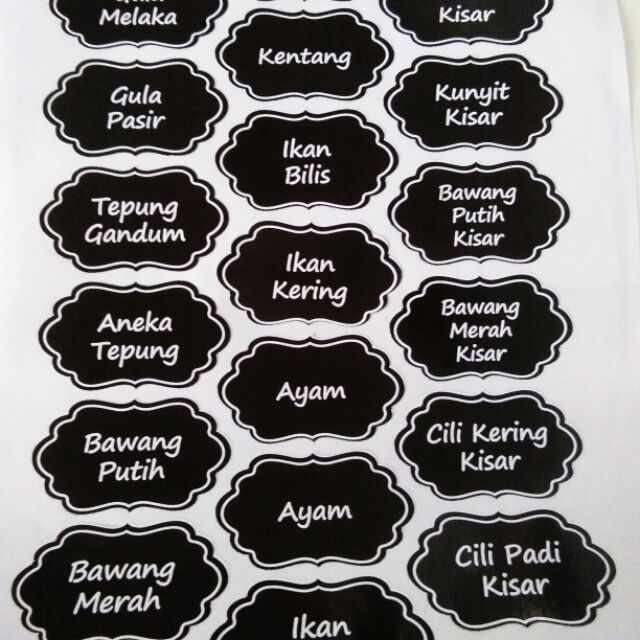 Melaka
Gula
Pasir
Tepung
Gandum
Aneka
Tepung
Bawang
Putih
Bawang
Merah
Kentang
Ikan
Bilis
Ikan
Kering
Ayam
Ayam
Ikan
Kisar
Kunyit
Kisar
Bawang
Putih
Kisar
Bawang
Merah
Kisar
Cili Kering
Kisar
Cili Padi
Kisar